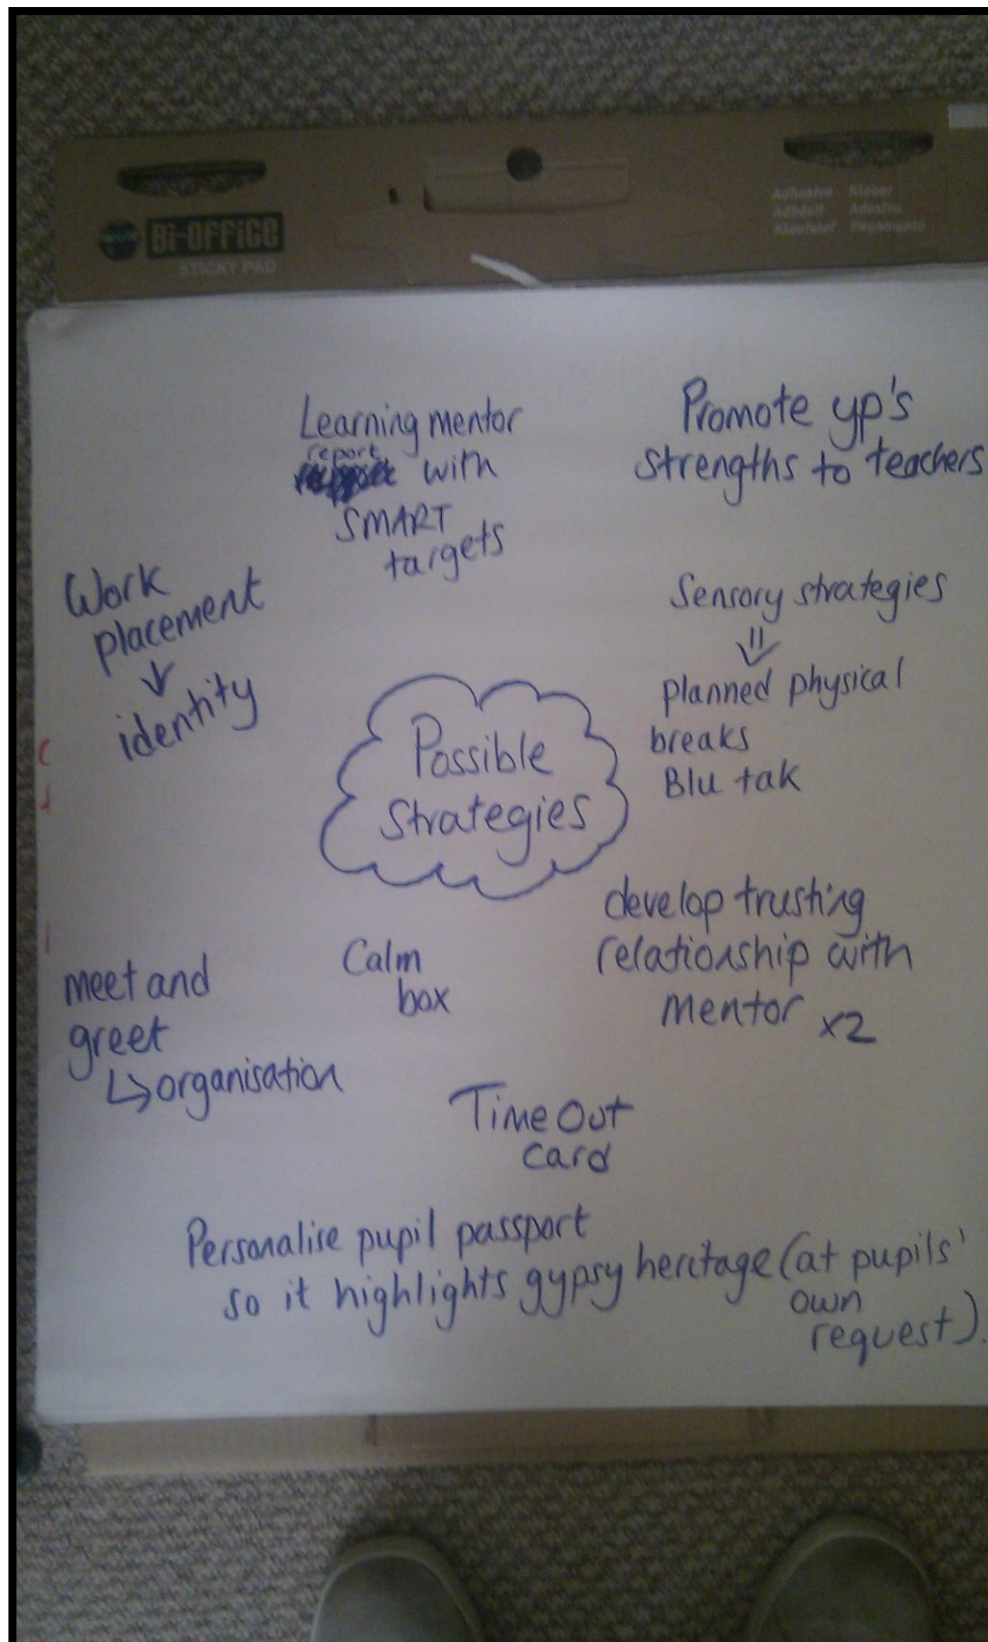 Bi-OFFiCE
STICKY PAD
Adhesive Kleber
Adhésif Adesivo
Kleefstof Pegamento
Learning mentor
report
with
SMART
targets
Promote yp's
strengths to teachers
Work
placement
identity
Sensory strategies
planned physical
breaks
Blu tak
Possible
Strategies
develop trusting
relationship with
mentor x2
Calm
box
meet and
greet
organisation
Time Out
card
Personalise pupil passport
so it highlights gypsy heritage (at pupils'
own
request).